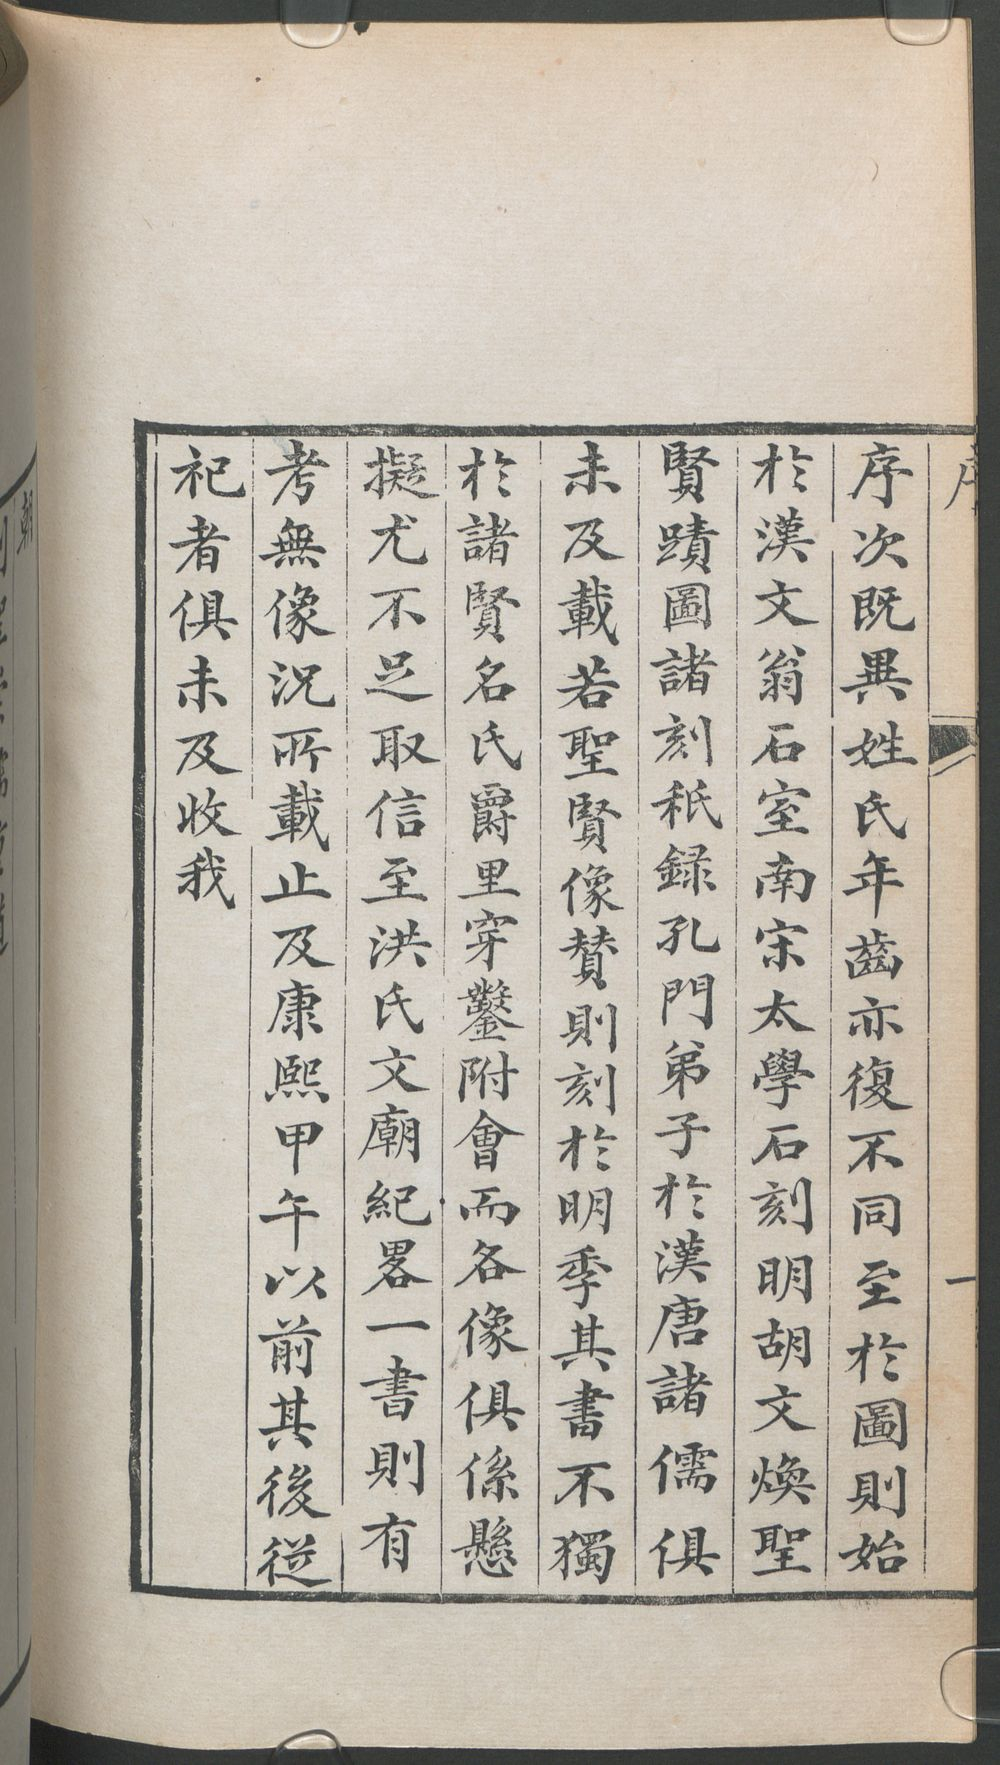 序
一
序次既異姓氏年齒亦復不同至於圖則始
於漢文翁石室南宋太學石刻明胡文煥聖
賢蹟圖諸刻秖錄孔門弟子於漢唐諸儒俱
未及載若聖賢像贊則刻於明季其書不獨
於諸賢名氏爵里穿鑿附會而各像俱係懸
擬尤不足取信至洪氏文廟紀畧一書則有
考無像況所載止及康熙甲午以前其後從
祀者俱未及收我
朝